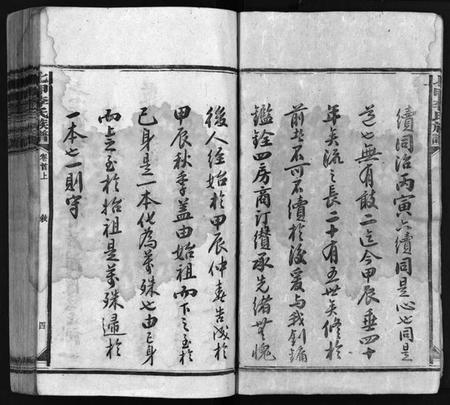 續同治丙寅六續同是心也同是
道也無有敢二迄今甲辰垂四十
年矣流之長二十有五世矣修於
前者不可不續於後爰與我釗鏞
鑑銓四房商訂纘承先緒無愧
後人經始於甲辰仲春告成於
甲辰秋季蓋由始祖而下之至於
己身是一本化為萬殊也由己身
而上之至於始祖是萬殊歸於
一本也一則守
七甲李氏族譜
卷首上
敘
四